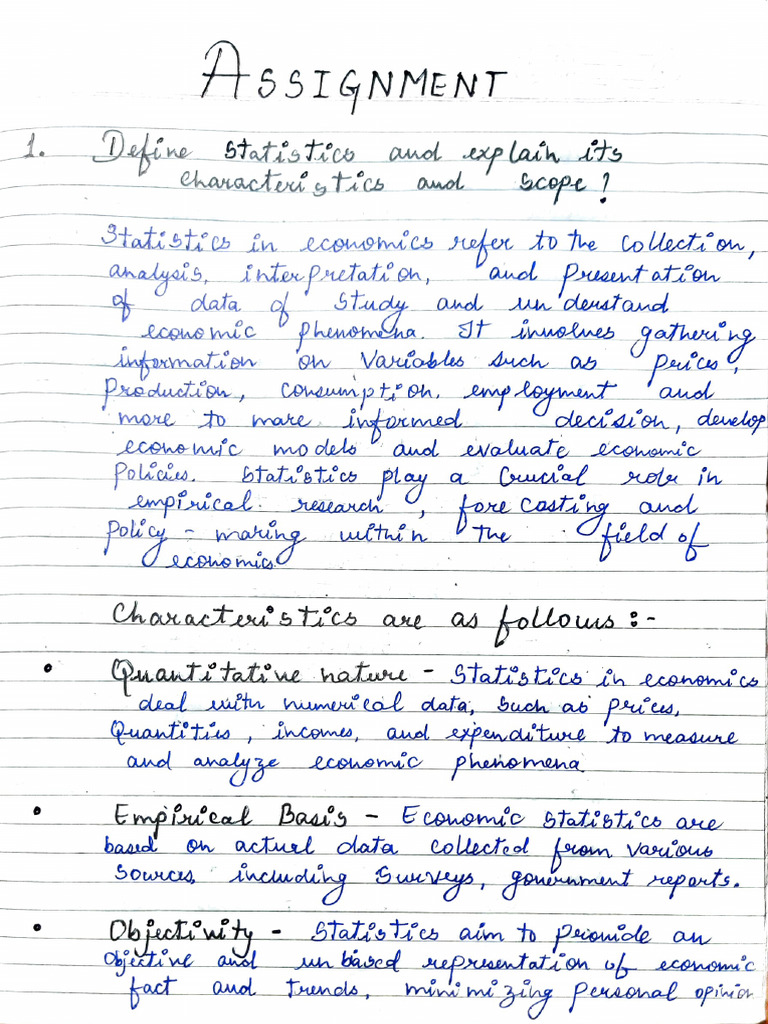 ASSIGNMENT
1. Define statistics and explain its
characteristics and scope?
Statistics in economics refer to the collection,
analysis, interpretation, and presentation
of data of study and understand
economic phenomena. It involves gathering
information on variables such as prices,
production, consumption, employment and
more to mare informed decision, develop
economic models and evaluate economic
policies. Statistics play a crucial role in
empirical research, fore casting and
policy - maring within the field of
economics.
Characteristics are as follows :-
• Quantitative nature - Statistics in economics
deal with numerical data, such as prices,
Quantities, incomes, and expenditure to measure
and analyze economic phenomena
• Empirical Basis - Economic statistics are
based on actual data collected from various
sources, including surveys, government reports.
• Objectivity - Statistics aim to provide an
objective and un based representation of economic
fact and trends, minimizing personal opinion